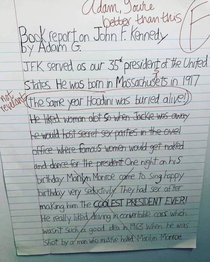 Adam, you're
better than this
F
Book report on John F. Kennedy
by Adam G.
JFK served as our 35th president of the United
States. He was born in Massachusets in 1917
not relevant
(The same year Hoodini was buried alive!)
He liked woman alot so when Jackie was away
he would host secret sex parties in the ovel
office where famous women would get naked
and dance for the president. One night on his
birthday Marilyn Monroe came to sing happy
birthday very seductivly. They had sex after
making him the COOLEST PRESIDENT EVER!
He really liked driving in convertable cars which
wasn't such a good idea in 1963 when he was
shot by a man who must've hated Marilyn Monroe.